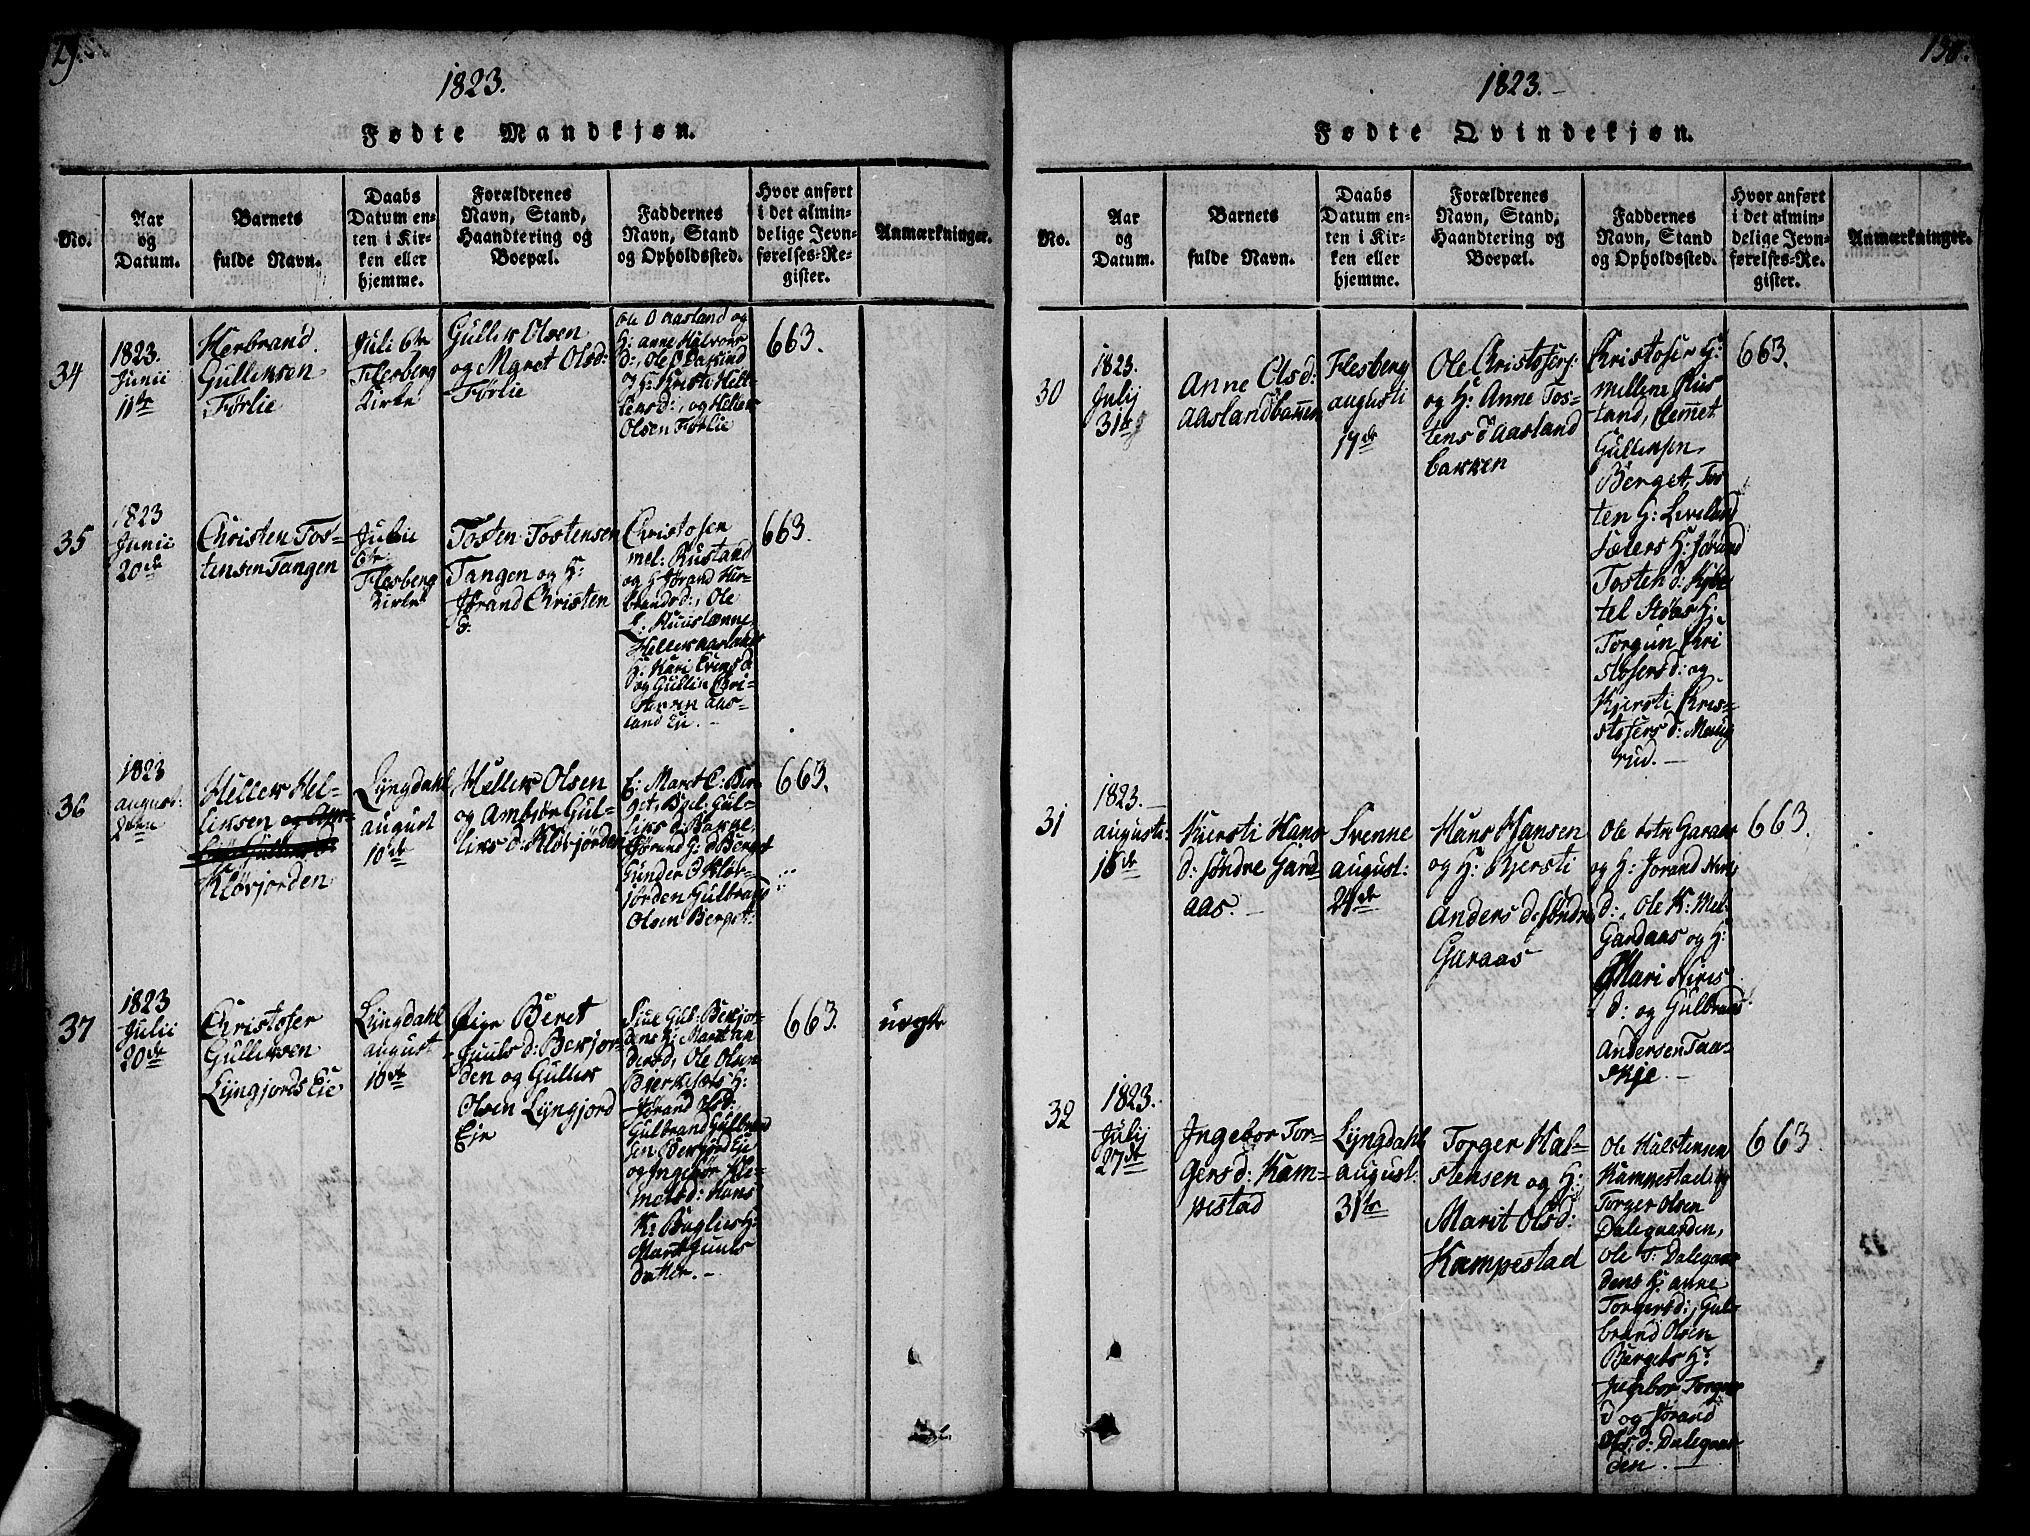 29.
1823.
Fødte Mandkjøn.
No.
Aar
og
Datum.
Barnets
fulde Navn.
Daabs
Datum en-
ten i Kir-
ken eller
hjemme.
Forældrenes
Navn, Stand,
Haandtering og
Boepæl.
Faddernes
Navn, Stand
og Opholdssted.
Hvor anført
i det almin-
delige Jevn-
førelses-Re-
gister.
Anmærkninger.
34
1823.
Junii
11te
Herbrand
Gulliksen
Førlie
Juli 6te
Flesberg
Kirke
Gullik Olsen
og Maret Olsd:
Førlie
Ole O Aasland og
H: Anne Halvors
d:, Ole O
H: Kristi Hell-
iksd:, og Hellek
Olsen Førlie
663.
35
1823
Junii
20de
Christen Tos-
tensen Tangen
Julie
6te
Flesberg
Kirke
Tosten Tostensen
Tangen og H:
Jørand Christen
d:
Christofer
mel: Rustand
og H Jørand Her-
brandsd:, Ole
E:
Hellek Aasland
H: Kari Evens d
og Gullik
Aas-
land Eie. –
663.
36
1823
August:
2den
Hellek Hel-
liksen
Kløvjorden
Lyngdahl
August
10de
Hellek Olsen
og Ambjør Gul-
liks d: Kløvjorden
E: Maret C: Ber-
get, Gul-
liks d: Bakke,
Jørand G: d Berget
Gunder O Kløv-
jorden Gulbrand
Olsen Berget.
663.
37
1823
Julii
20de
Christofer
Gulliksen
Lyngjords Eie
Lyngdahl
August
10de
Pige Beret
Juuls d: Bekjor-
den og Gullik
Olsen Lyngjord
Eje
Juul Gul: Bekjor-
dens H: Maret An
dersd, Ole Olsen
H:
Jørand Olsd.
Gulbrand Gulbrand
sen Bekjord Eie
og Ingebør Kle-
metsd: Hans
K: Buglies H:
Maret Juuls
datter. –
663.
uægte
130.
1823. –
Fødte Qvindekjøn.
No.
Aar
og
Datum.
Barnets
fulde Navn.
Daabs
Datum en-
ten i Kir-
ken eller
hjemme.
Forældrenes
Navn, Stand,
Haandtering og
Boepæl.
Faddernes
Navn, Stand
og Opholdssted.
Hvor anført
i det almin-
delige Jevn-
førelses-Re-
gister.
Anmærkninger.
30
1823.
Julij
31te
Anne Olsd:
Aaslandbakken
Flesberg
Augusti
17de
Ole Christofers:
og H: Anne Tos-
tens d Aasland
bakken
Kristofer H:
mellem Rus
tand, Clemet
Gulliksen
Berget, Tos
ten H: Leveland
Sæters H: Jørand
Tosten d:
tel Støas H:
Torgun Kri
stofersd: og
Kjersti Kris-
stofers d:
rud. –
663.
31
1823. –
Augusti:
16de
Kjersti Hans
d: Søndre Gard-
aas. –
Svenne
August:
24de
Hans Hansen
og H: Kjersti
Anders d: Søndre
Garaas
Ole Garaas
og H: Jorand
d:, Ole K: Mel-
Gardaas og H:
Mari
d: og Gulbrand
Andersen Taa-
skje. –
663.
32
1823.
Julij
27de
Ingebor Tor-
gersd: Kam-
pestad
Lyngdahl
August:
31te
Torger Hal-
stensen og H:
Marit Olsd:
Kampestad
Ole Halstensen
Kampestad og
Torger Olsen
Dalegaarden,
Ole T: Dalegaar
dens H: Anne
Torgersd:, Gul-
brand Olsen
Bergets H:
Ingebor Torger
d og Jørand
Ols d: Dalegaar
den. –
663.